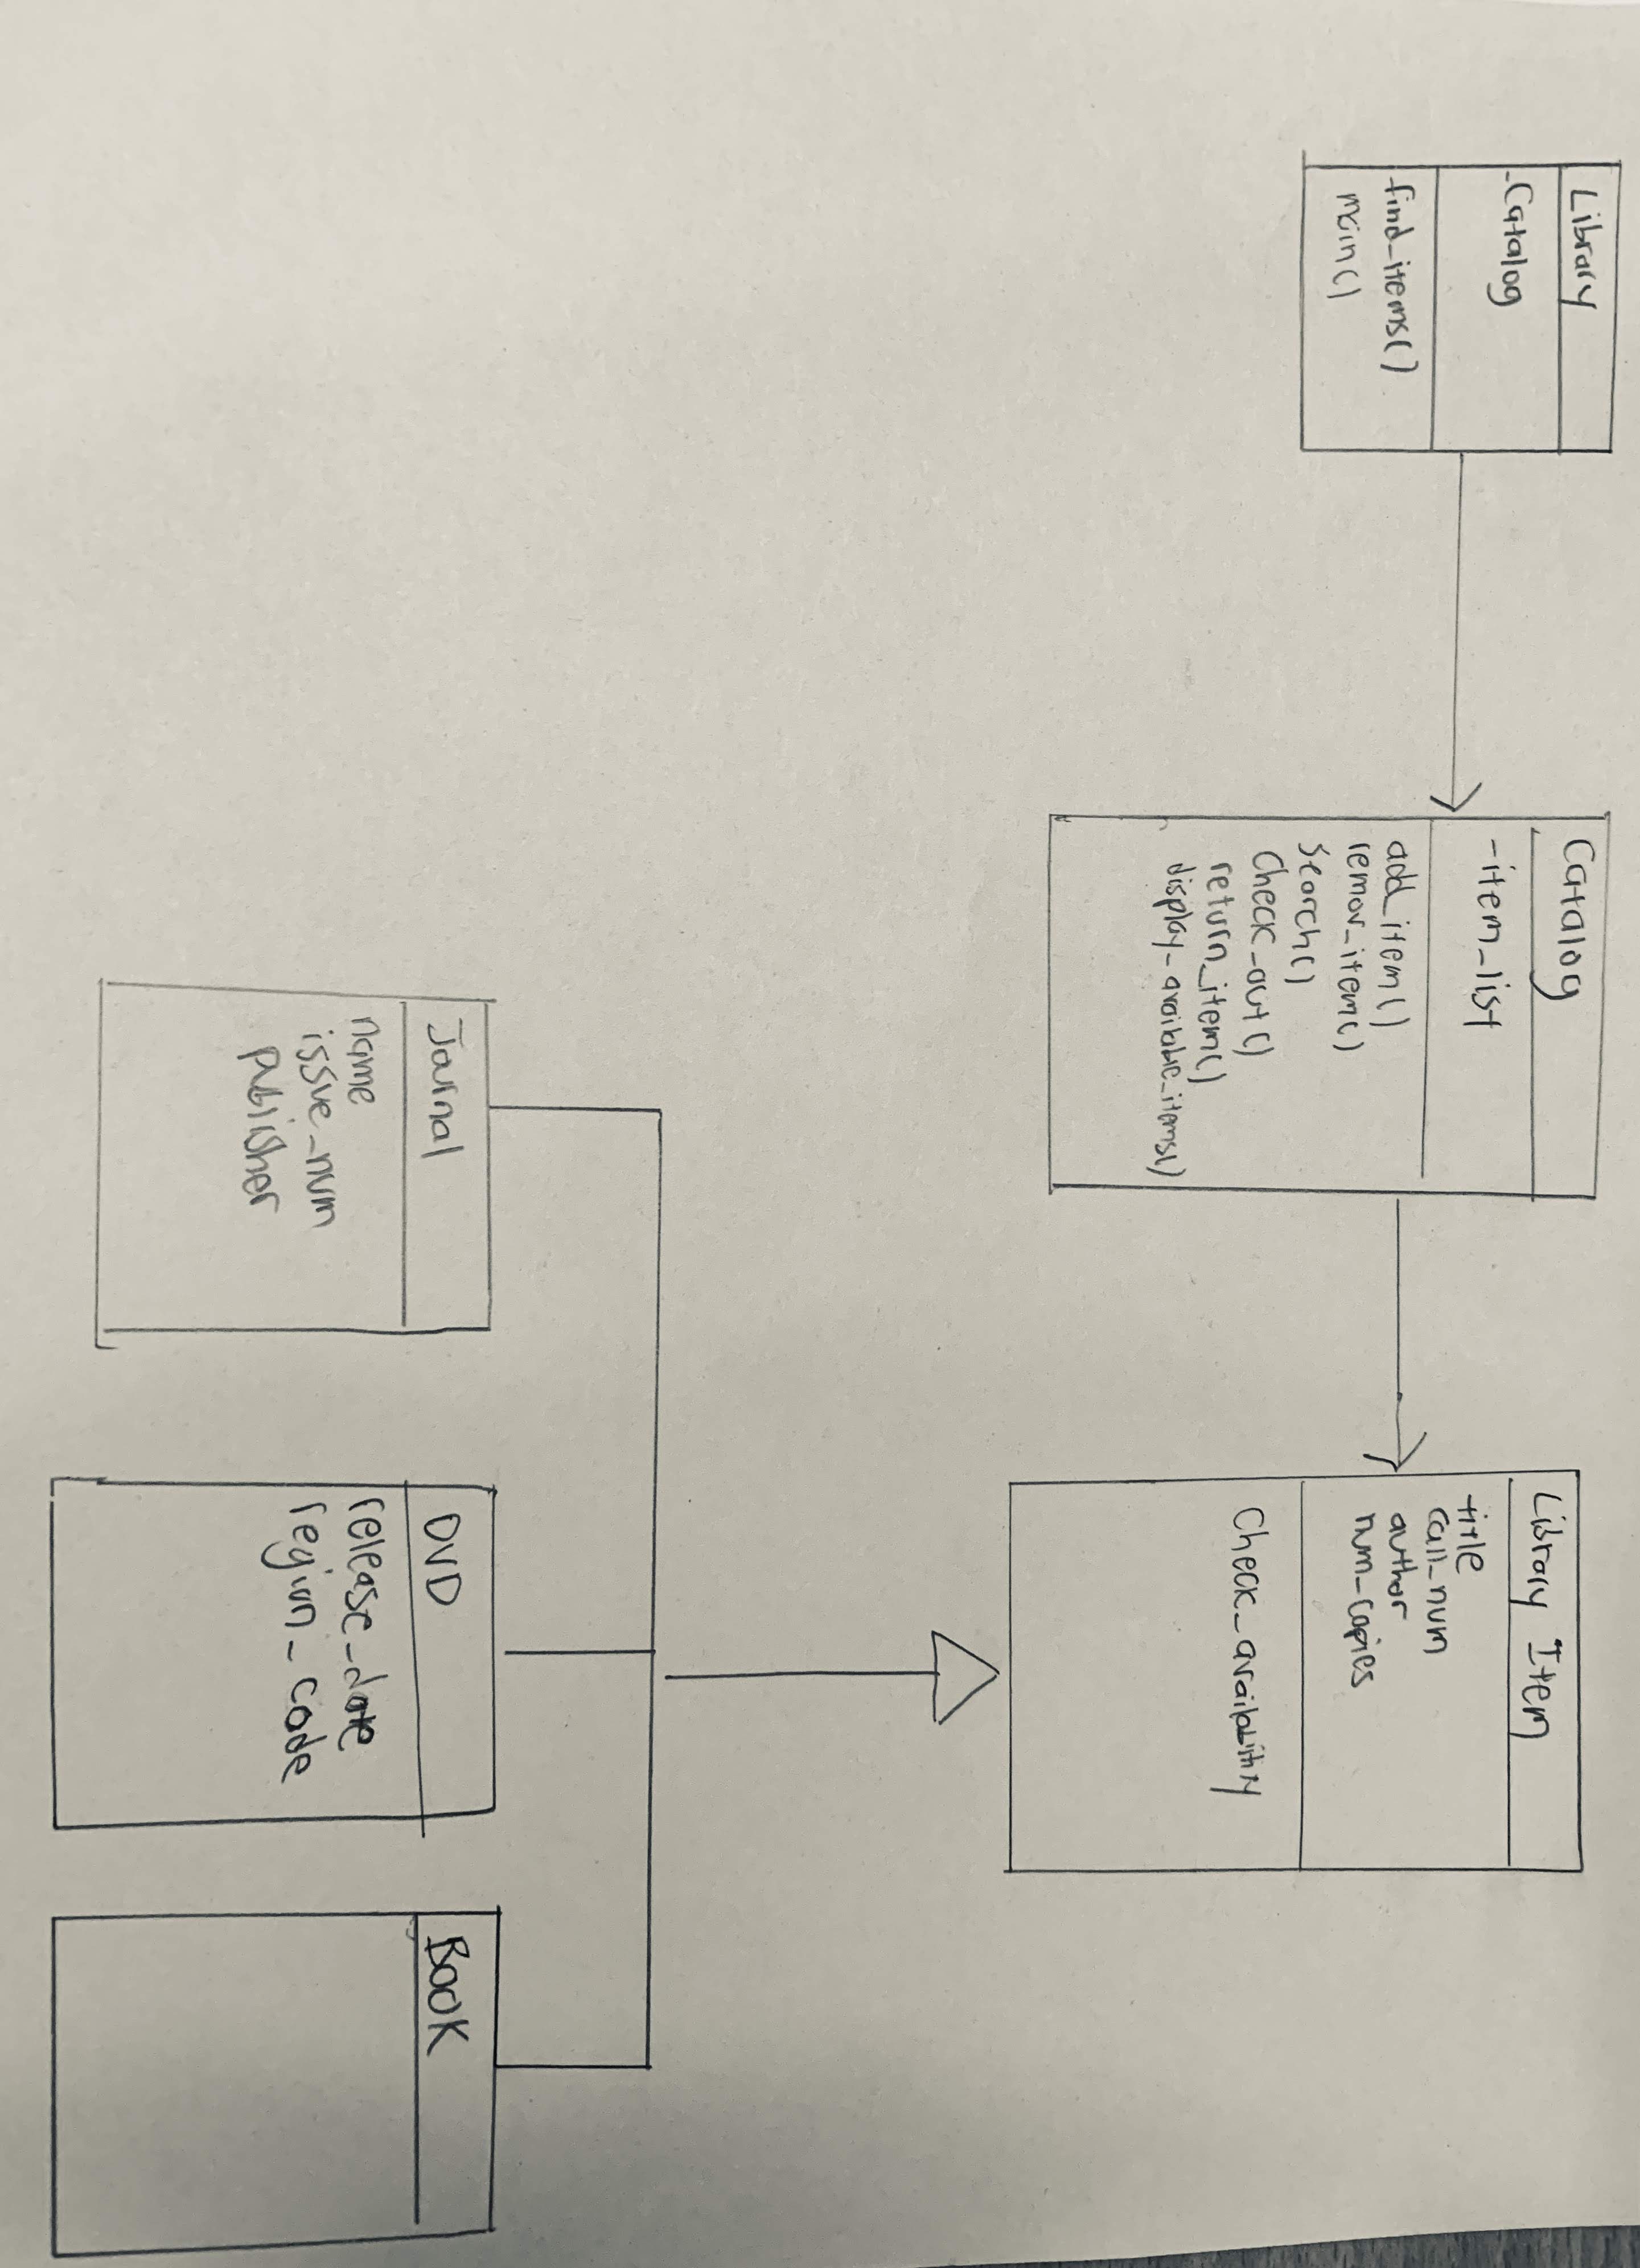 Library
-Catalog
find_items()
main()
Catalog
-item_list
add_item()
remov_item()
search()
Check_out()
return_item()
display_available_items()
Library Item
title
call_num
author
num_copies
Check_availability
Journal
name
issue_num
publisher
DVD
release_date
region_code
BOOK